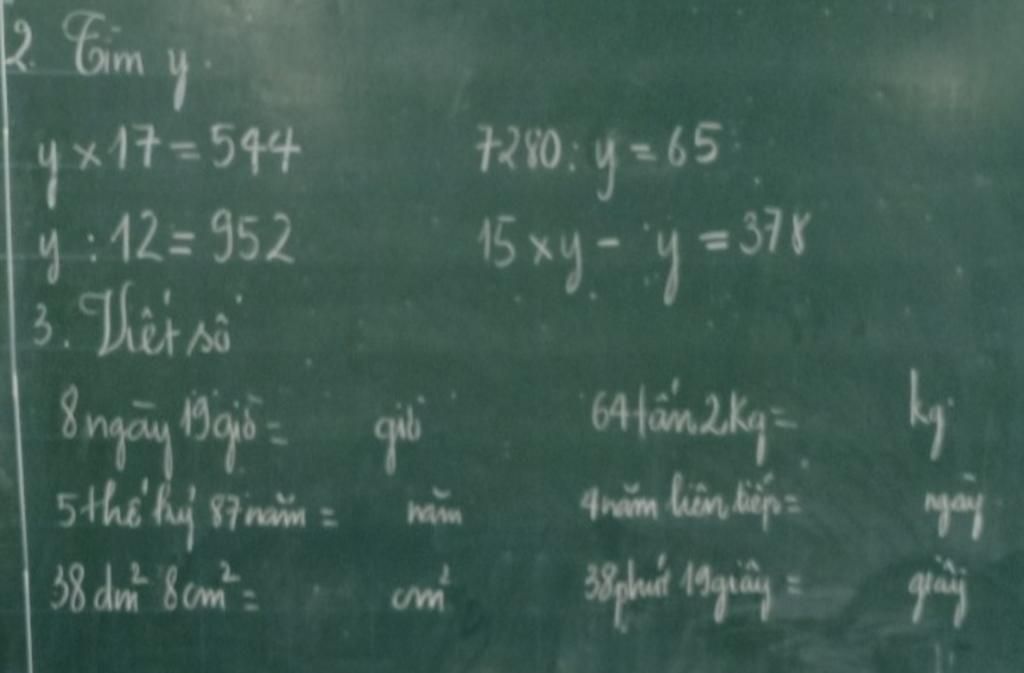 2. Tìm y.
y × 17 = 544 7280 : y = 65
y : 12 = 952 15 × y - y = 378
3. Viết số
8 ngày 19 giờ = giờ 64 tấn 2 kg = kg
5 thế kỷ 87 năm = năm 4 năm liên tiếp = ngày
38 dm² 8 cm² = cm² 38 phút 19 giây = giây